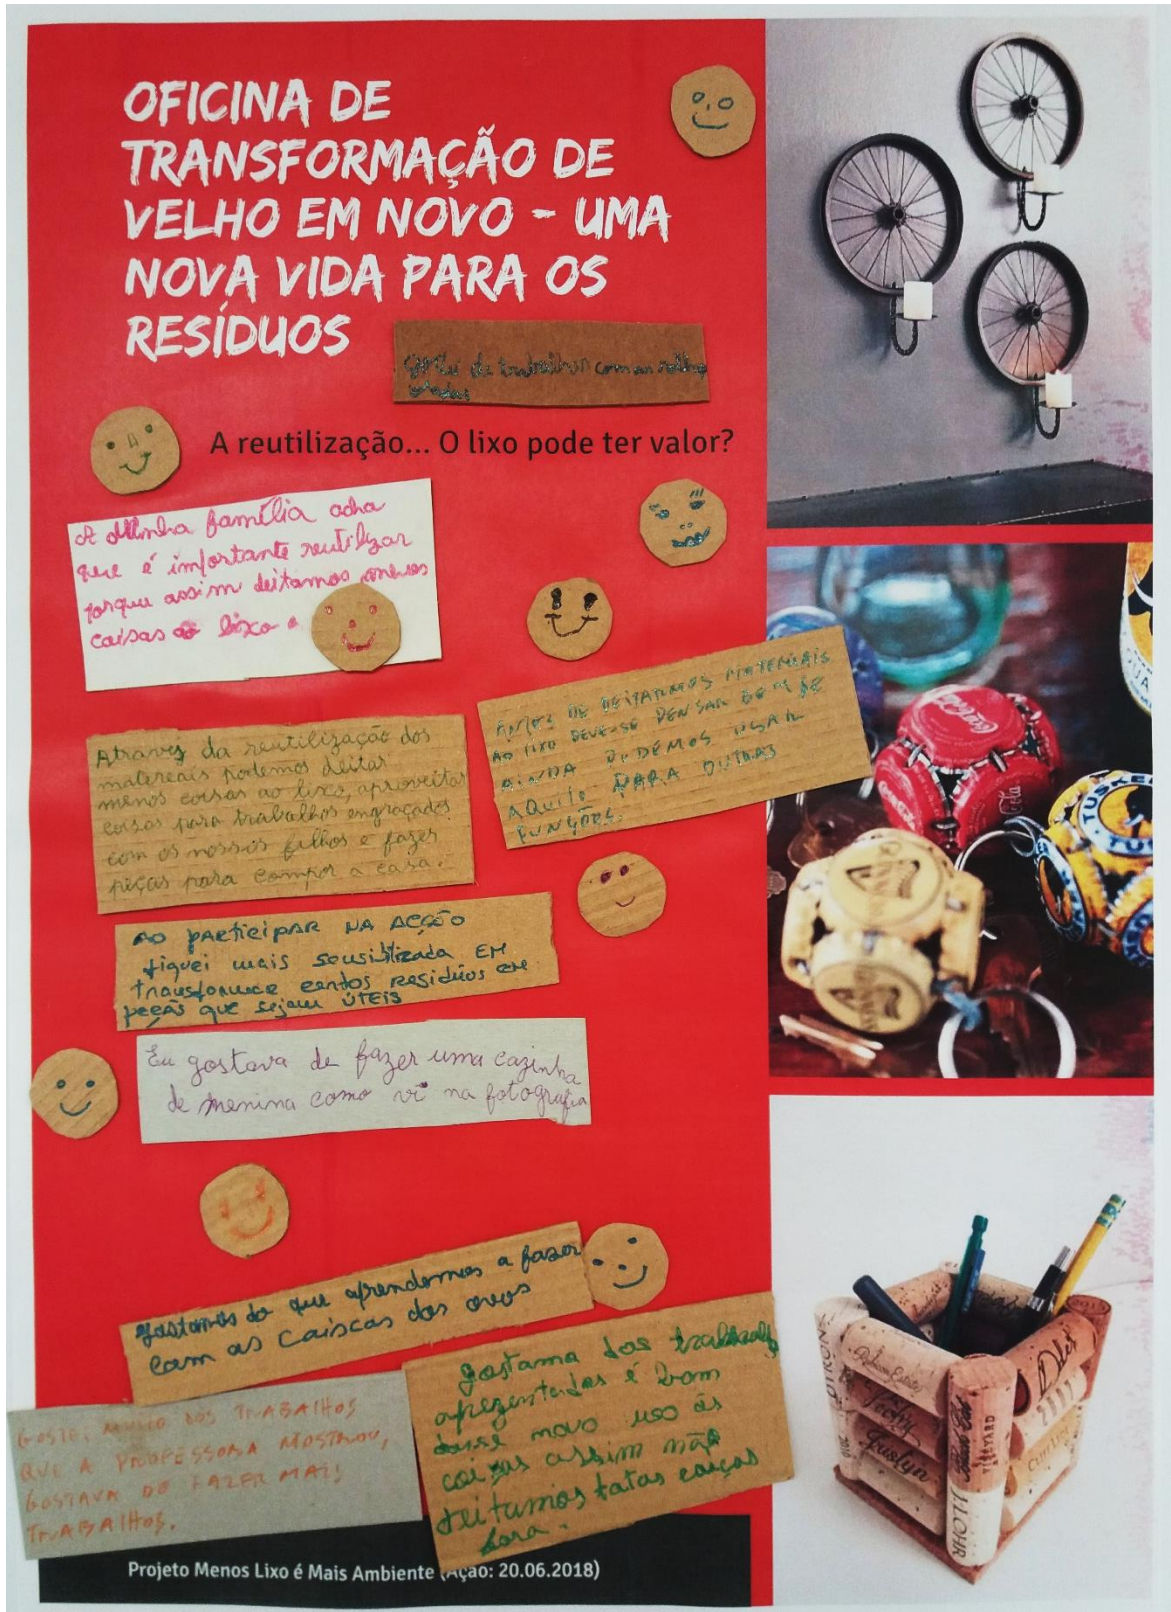 OFICINA DE
TRANSFORMAÇÃO DE
VELHO EM NOVO - UMA
NOVA VIDA PARA OS
RESÍDUOS
gostei de trabalhar com as rolhas
A reutilização... O lixo pode ter valor?
A Minha família acha
que é importante reutilizar
porque assim deitamos menos
coisas ao lixo
Através da reutilização dos
matereais podemos deitar
menos coisas ao lixo, aproveitar
coisas para trabalhos engraçados
com os nossos filhos e fazer
peças para compor a casa.
ANTES DE DEITARMOS MATERIAIS
AO LIXO DEVE-SE PENSAR BEM SE
AINDA PUDEMOS USAR
AQUILO PARA OUTRAS
FUNÇÕES.
AO PARTICIPAR NA ACÇÃO
fiquei mais sensiblizada EM
transformar certos residúos em
peças que sejam ÚTEIS
Eu gostava de fazer uma cazinha
de menina como vi na fotografia
gostamos do que aprendemos a fazer
com as caiscas dos ovos
GOSTEI MUITO DOS TRABALHOS
QUE A PROFESSORA MOSTROU,
GOSTAVA DE FAZER MAIS
TRABALHOS.
gostama dos
aprezentados é bom
darsé novo uso ás
coizas assim não
deitamos tatas coiças
fora.
Projeto Menos Lixo é Mais Ambiente (Ação: 20.06.2018)
Coca-Cola
GUINNESS
TUSKER
VINEYARD
J. LOHR